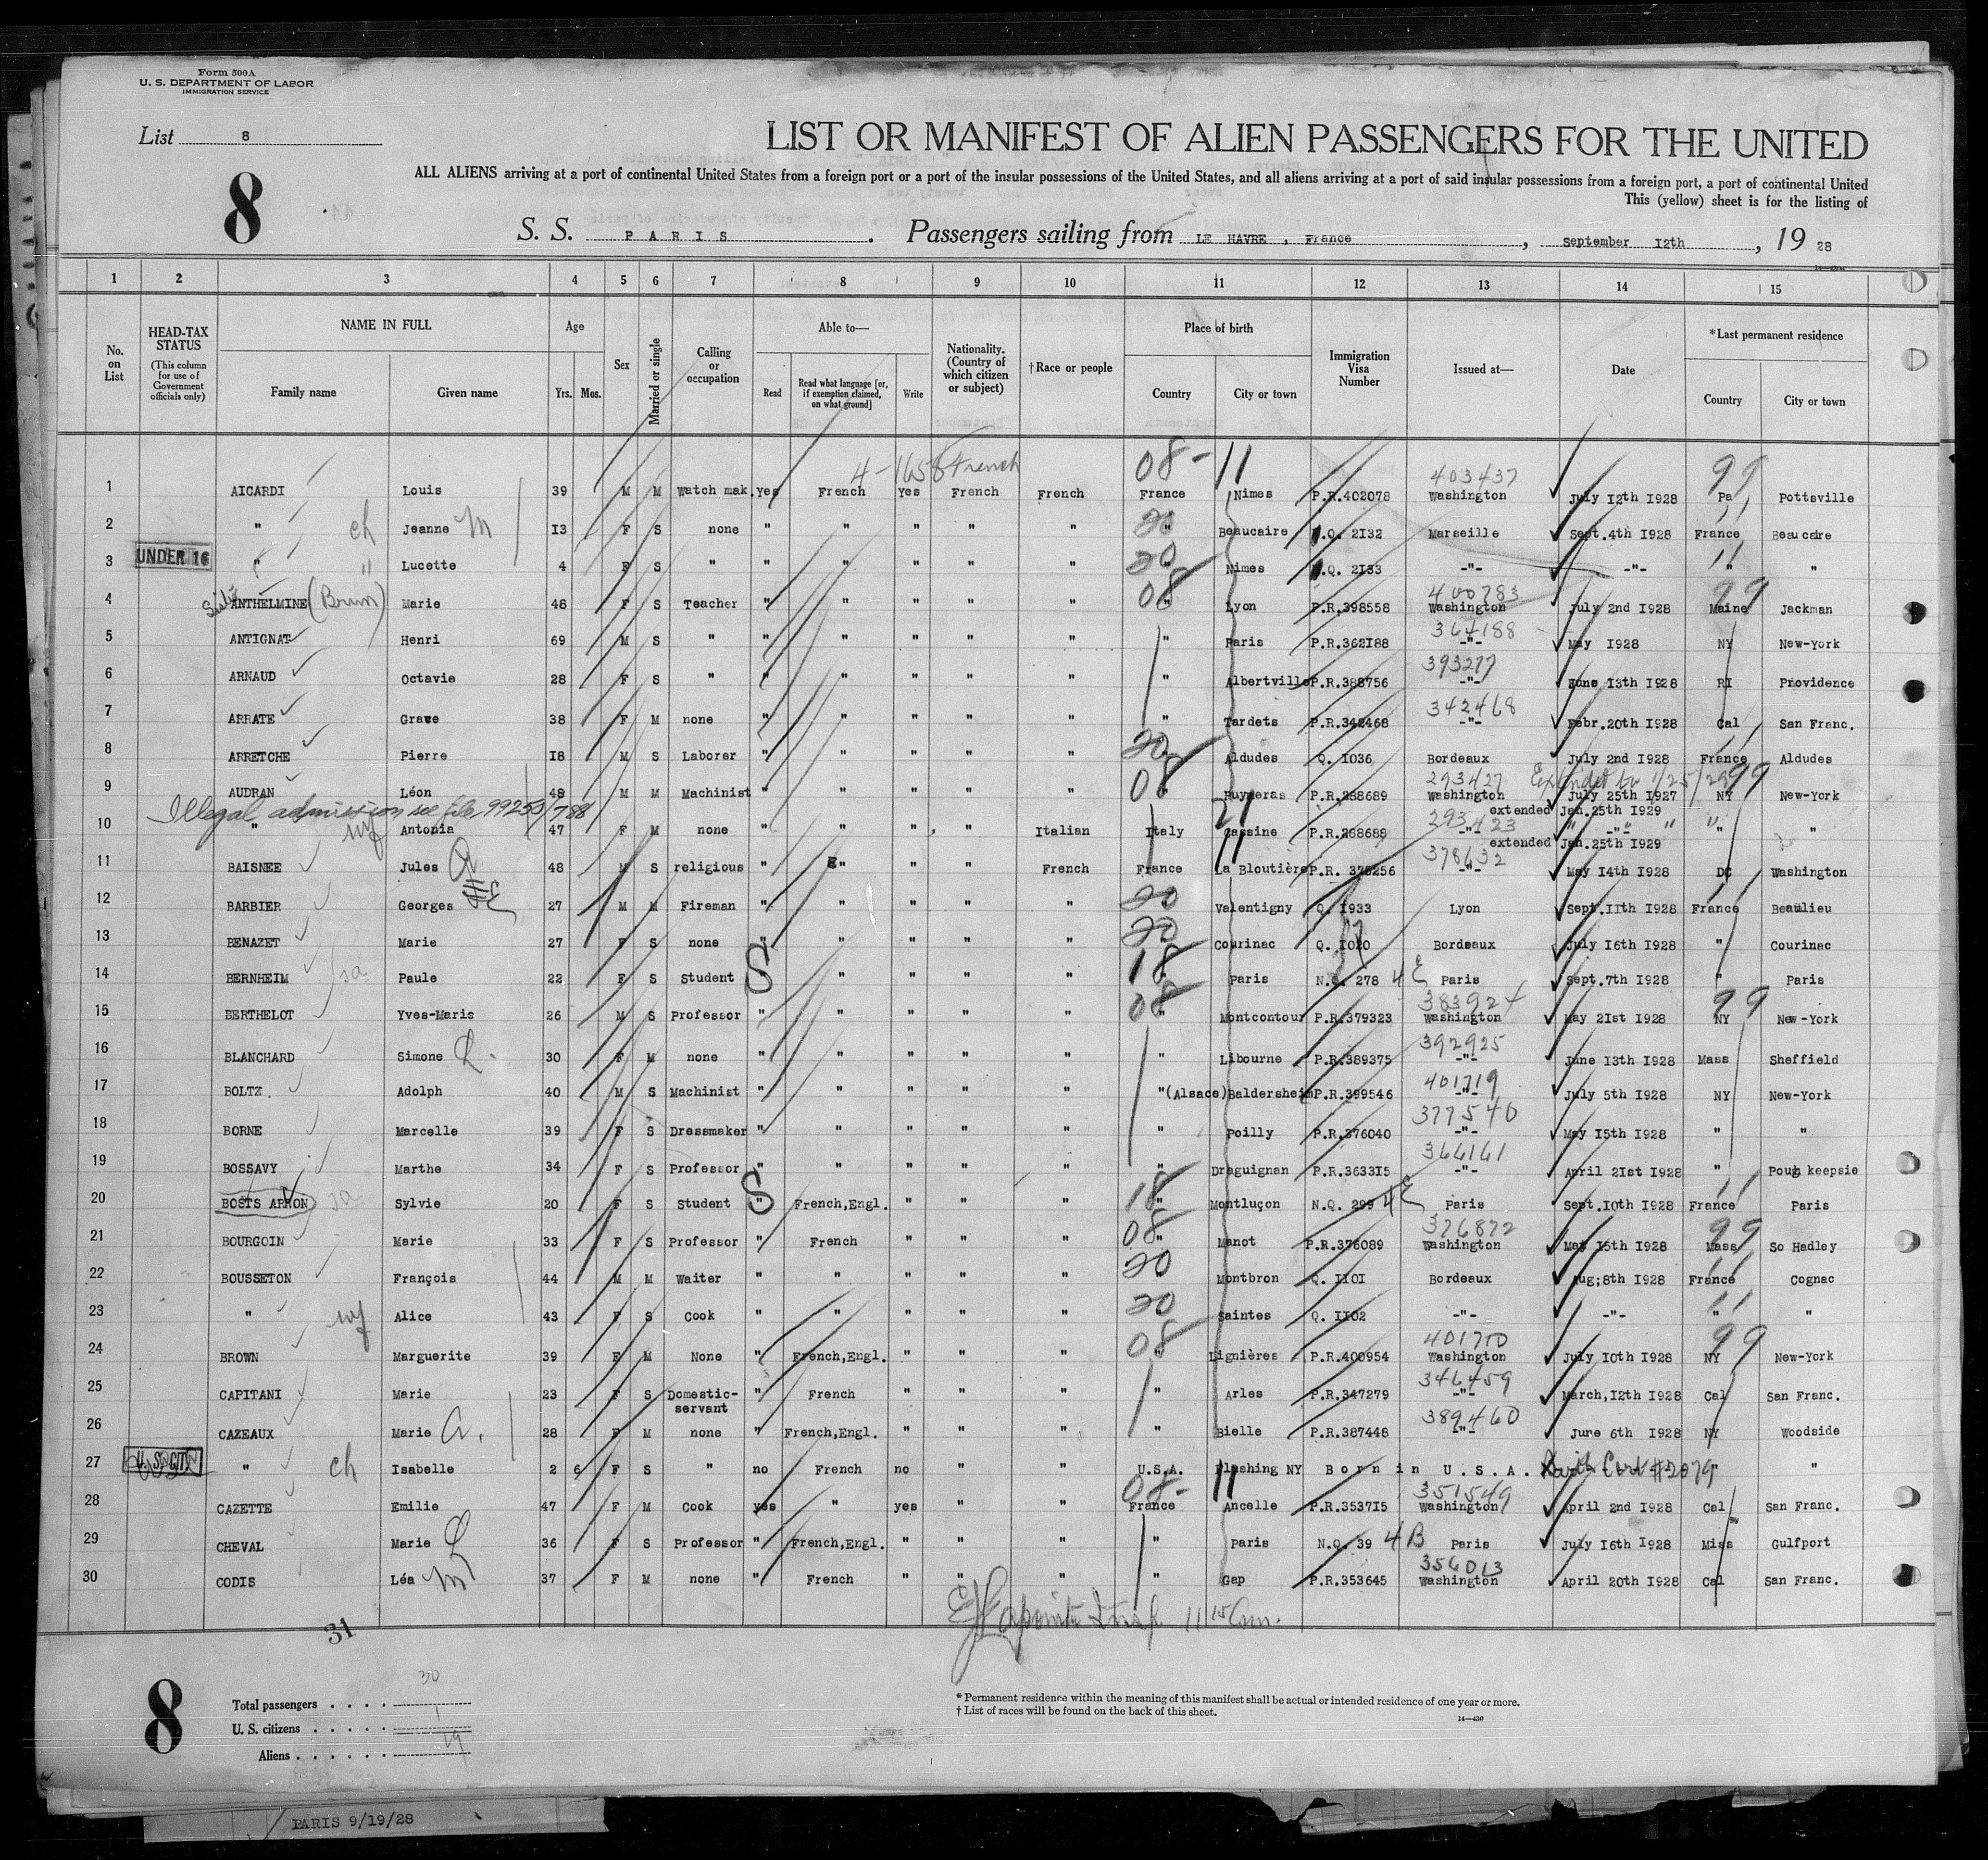 Form 500A
U. S. DEPARTMENT OF LABOR
IMMIGRATION SERVICE
List 8
LIST OR MANIFEST OF ALIEN PASSENGERS FOR THE UNITED
ALL ALIENS arriving at a port of continental United States from a foreign port or a port of the insular possessions of the United States, and all aliens arriving at a port of said insular possessions from a foreign port, a port of continental United
This (yellow) sheet is for the listing of
8
S. S. PARIS . Passengers sailing from LE HAVRE , France , September 12th , 19 28
1 2 3 4 5 6 7 8 9 10 11 12 13 14 15
No. on List HEAD-TAX STATUS (This column for use of Government officials only) NAME IN FULL Family name Given name Age Yrs. Mos. Sex Married or single Calling or occupation Able to— Read Read what language [or, if exemption claimed, on what ground] Write Nationality. (Country of which citizen or subject) †Race or people Place of birth Country City or town Immigration Visa Number Issued at— Date *Last permanent residence Country City or town
4-1658 French 08-11 403437 99
1 AICARDI Louis 39 M M Watch mak. yes French yes French French France Nimes P.R.402078 Washington July 12th 1928 Pa Pottsville
2 " ch Jeanne M 13 F S none " " " " " 20 " Beaucaire Q. 2132 Marseille Sept.4th 1928 France Beaucaire
3 UNDER 16 " " Lucette 4 F S " " " " " " 20 " Nimes Q. 2133 -"- -"- " "
400783
4 ANTHELMINE Marie 48 F S Teacher " " " " " 08 " Lyon P.R.398558 Washington July 2nd 1928 99 Maine Jackman
364188
5 ANTIGNAT Henri 69 M S " " " " " " " Paris P.R.362188 -"- May 1928 NY New-York
393277
6 ARNAUD Octavie 28 F S " " " " " " " Albertville P.R.388756 -"- June 13th 1928 RI Providence
342468
7 ARRATE Grave 38 F M none " " " " " " Tardets P.R.342468 -"- Febr.20th 1928 Cal San Franc.
8 ARRETCHE Pierre 18 M S Laborer " " " " " 20 " Aldudes Q. 1036 Bordeaux July 2nd 1928 France Aldudes
293427 Extended to 1/25/29 99
9 AUDRAN Léon 48 M M Machinist " " " " " 08 " Puyseras P.R.288689 Washington July 25th 1927 NY New-York
extended Jan.25th 1929
Illegal admission see file 99253/788
293423
10 " wf Antonia 47 F M none " " " " Italian Italy 21 Cassine P.R.288688 -"- " -"- " " "
extended Jan.25th 1929
378632
11 BAISNEE Jules 48 M S religious " " " " French France 11 La Bloutière P.R. 378256 -"- May 14th 1928 DC Washington
12 BARBIER Georges 27 M M Fireman " " " " " 20 " Valentigny Q. 1933 Lyon Sept.11th 1928 France Beaulieu
13 BENAZET Marie 27 F S none " " " " " 20 " Courinac Q. 1020 Bordeaux July 16th 1928 " Courinac
14 BERNHEIM Paule 22 F S Student S " " " " 18 " Paris N.Q. 278 4E Paris Sept.7th 1928 " Paris
383924
15 BERTHELOT Yves-Maris 26 M S Professor " " " " " 08 " Montcontour P.R.379323 Washington May 21st 1928 99 NY New-York
392925
16 BLANCHARD Simone 30 F M none " " " " " " Libourne P.R.389375 -"- June 13th 1928 Mass Sheffield
401719
17 BOLTZ. Adolph 40 M S Machinist " " " " " "(Alsace) Baldersheim P.R.399546 -"- July 5th 1928 NY New-York
377540
18 BORNE Marcelle 39 F S Dressmaker " " " " " " Poilly P.R.376040 -"- May 15th 1928 " "
366161
19 BOSSAVY Marthe 34 F S Professor " " " " " " Draguignan P.R.363315 -"- April 21st 1928 " Pough keepsie
20 BOSTS ARRON Sylvie 20 F S Student S " French,Engl. " " " 18 " Montluçon N.Q. 299 4E Paris Sept.10th 1928 France Paris
376872
21 BOURGOIN Marie 33 F S Professor " French " " " 08 " Manot P.R.376089 Washington May 15th 1928 99 Mass So Hadley
22 BOUSSETON François 44 M M Waiter " " " " " 20 " Montbron Q. 1101 Bordeaux Aug;8th 1928 France Cognac
23 " wf Alice 43 F S Cook " " " " " 20 " Saintes Q. 1102 -"- -"- " "
401710
24 BROWN Marguerite 39 F M None " French,Engl. " " " 08 " Lignières P.R.400954 Washington July 10th 1928 99 NY New-York
346459
25 CAPITANI Marie 23 F S Domestic-servant " French " " " " Arles P.R.347279 -"- March,12th 1928 Cal San Franc.
389460
26 CAZEAUX Marie 28 F M none " French,Engl. " " " " Bielle P.R.387448 -"- June 6th 1928 NY Woodside
27 U. S. CIT " ch Isabelle 2 6 F S " no French no " " U.S.A. Flushing NY Born in U.S.A. Birth Cert #2079 " "
08-11 351549
28 CAZETTE Emilie 47 F M Cook yes " yes " " France Ancelle P.R.353715 Washington April 2nd 1928 Cal San Franc.
29 CHEVAL Marie 36 F S Professor " French,Engl. " " " " Paris N.Q. 39 4B Paris July 16th 1928 Miss Gulfport
356013
30 CODIS Léa M 37 F M none " French " " " " Gap P.R.353645 Washington April 20th 1928 Cal San Franc.
31
8
Total passengers . . . . 30
U. S. citizens . . . . . 1
Aliens . . . . . . 29
* Permanent residence within the meaning of this manifest shall be actual or intended residence of one year or more.
† List of races will be found on the back of this sheet.
14—430
PARIS 9/19/28